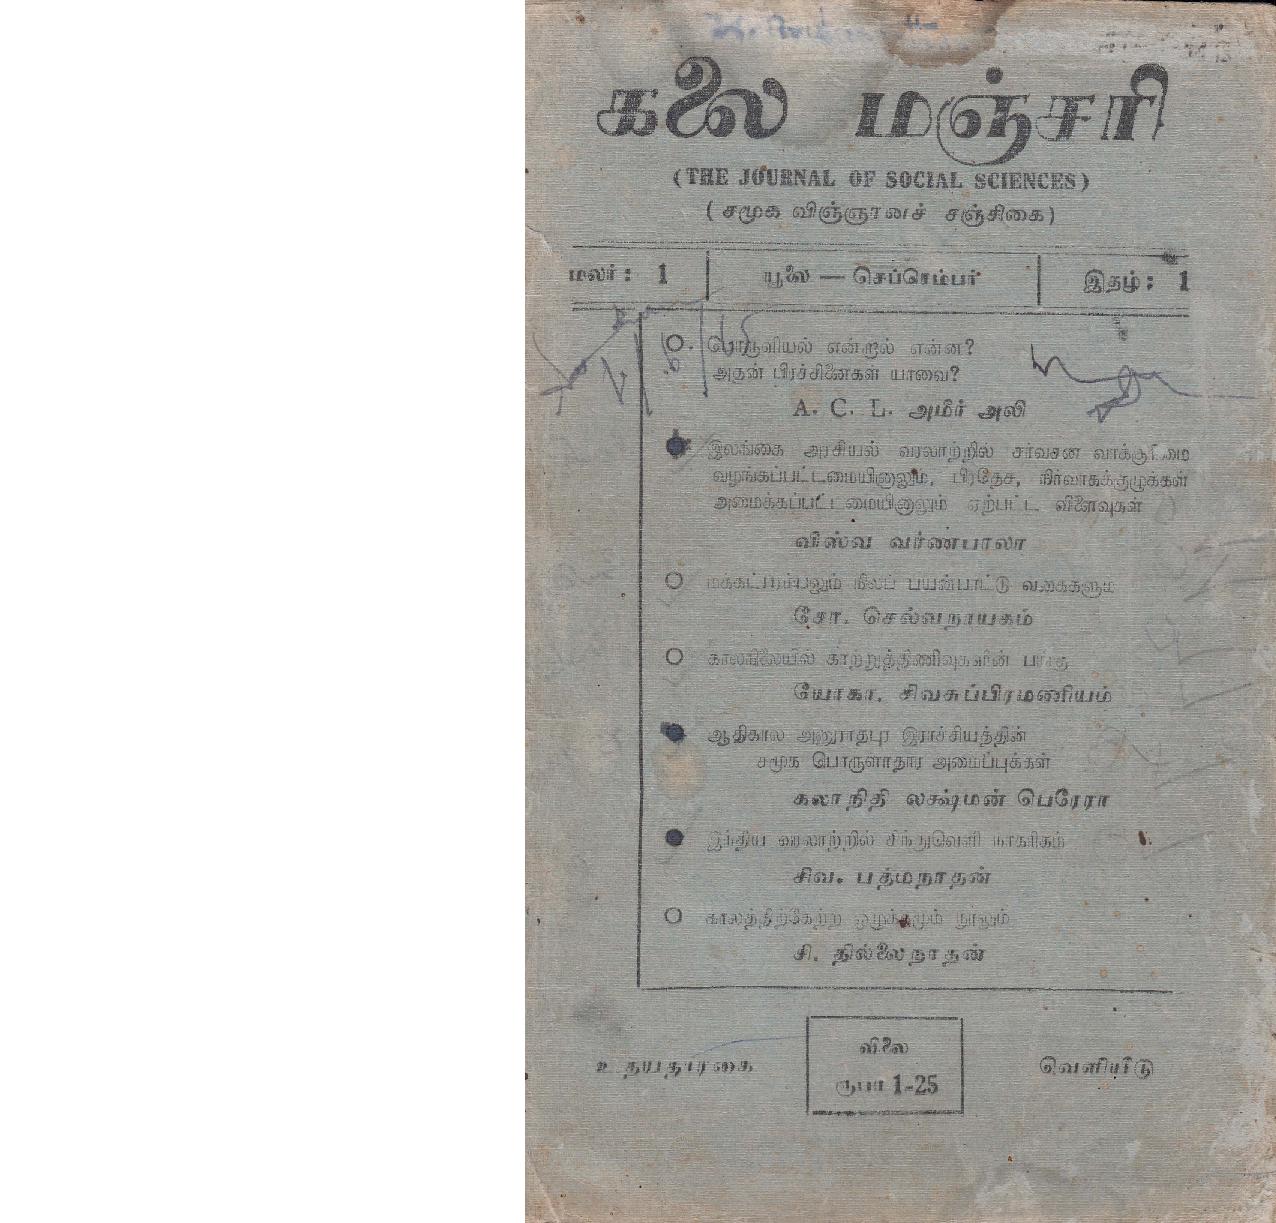 கலை மஞ்சரி
(THE JOURNAL OF SOCIAL SCIENCES)
(சமூக விஞ்ஞானச் சஞ்சிகை)
மலர் : 1
யூலை — செப்ரெம்பர்
இதழ் : 1
பொருளியல் என்றால் என்ன?
அதன் பிரச்சினைகள் யாவை?
A. C. L. அமீர் அலி
இலங்கை அரசியல் வரலாற்றில் சர்வசன வாக்குரிமை
வழங்கப்பட்டமையினாலும், பிரதேச, நிர்வாகக்குழுக்கள்
அமைக்கப்பட்டமையினாலும் ஏற்பட்ட விளைவுகள்
விஸ்வ வர்ணபாலா
மக்கட்பரம்பலும் நிலப் பயன்பாட்டு வகைகளும்
சோ. செல்வநாயகம்
காலநிலையில் காற்றுத்திணிவுகளின் பங்கு
யோகா. சிவசுப்பிரமணியம்
ஆதிகால அனுராதபுர இராச்சியத்தின்
சமூக பொருளாதார அமைப்புக்கள்
கலாநிதி லக்ஷ்மன் பெரேரா
இந்திய வரலாற்றில் சிந்துவெளி நாகரிகம்
சிவ. பத்மநாதன்
காலத்திற்கேற்ற ஒழுக்கமும் நூலும்
சி. தில்லைநாதன்
உதயதாரகை
விலை
ரூபா 1-25
வெளியீடு